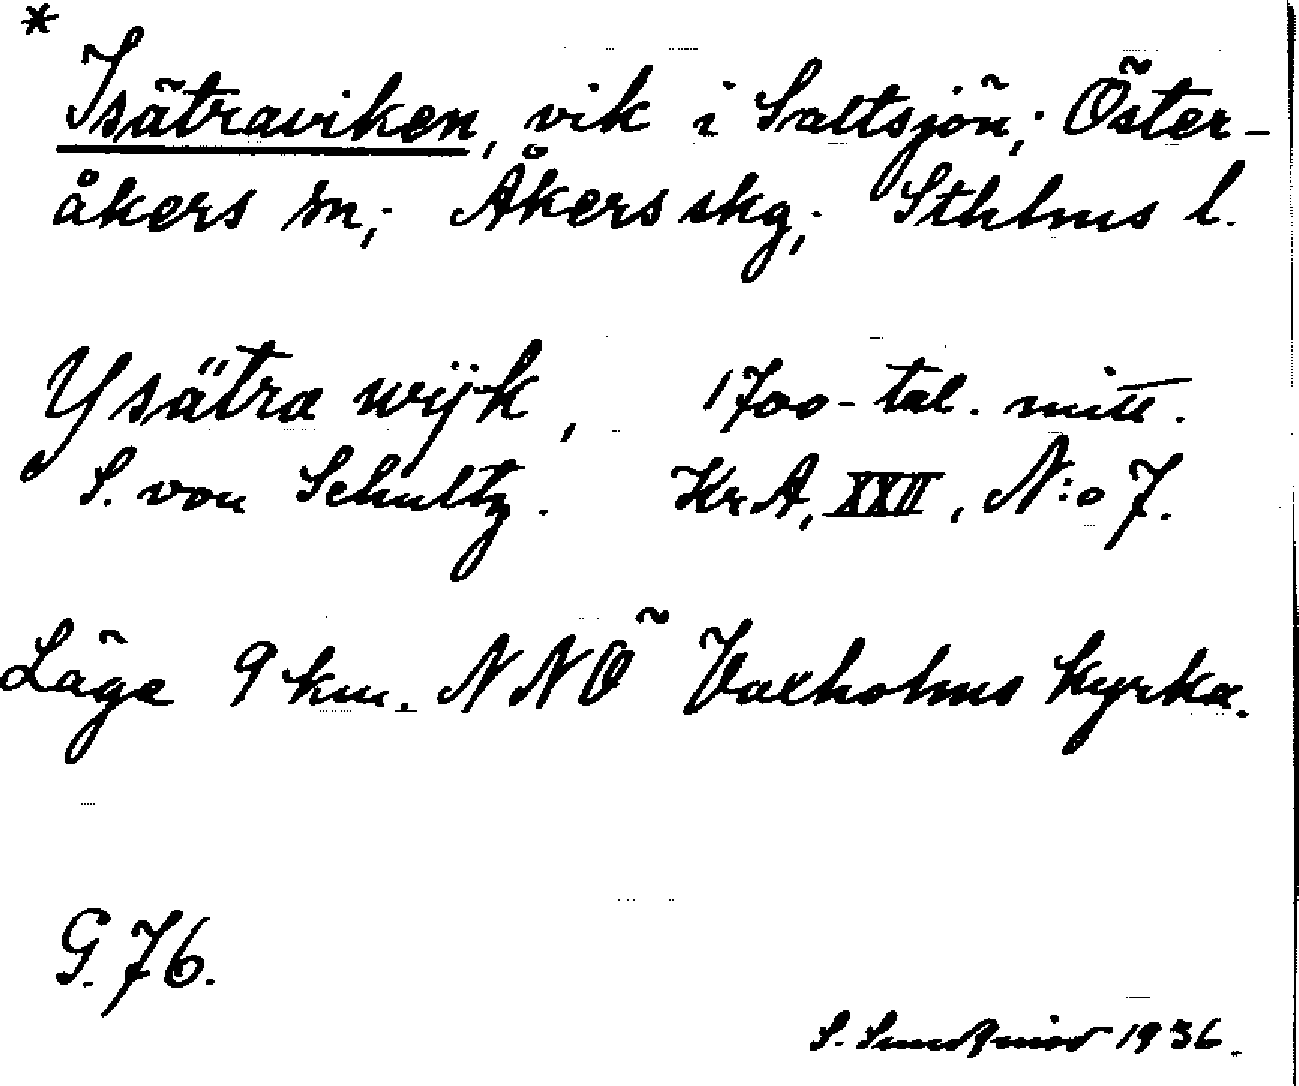 *
Isätraviken, vik i Saltsjön; Öster-
åkers sn; Åkers skg; Sthlms l.
Ysätra wijk, 1700-tal. mitt.
S. von Schultz. KrA, XXII, N:o 7.
Läge 9 km. NNÖ Vaxholms kyrka.
G. 76.
S. Sundqvist 1936.